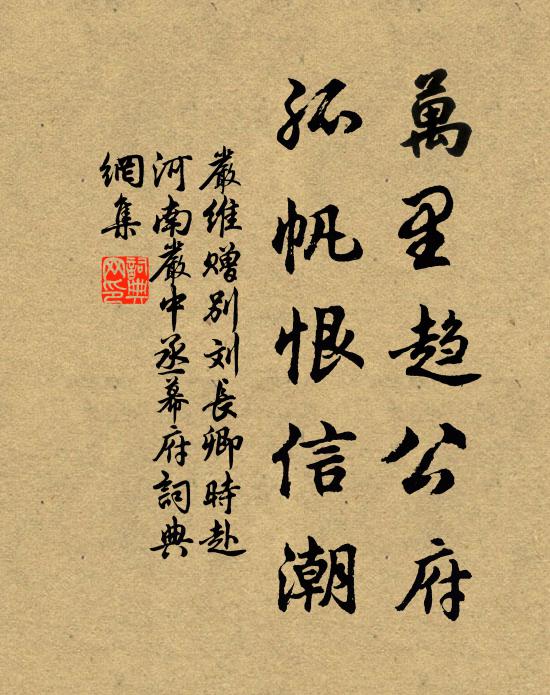 萬里趋公府
孤帆恨信潮
嚴維贈别刘長卿時赴
河南嚴中丞幕府詞典
網集
詞典
网印